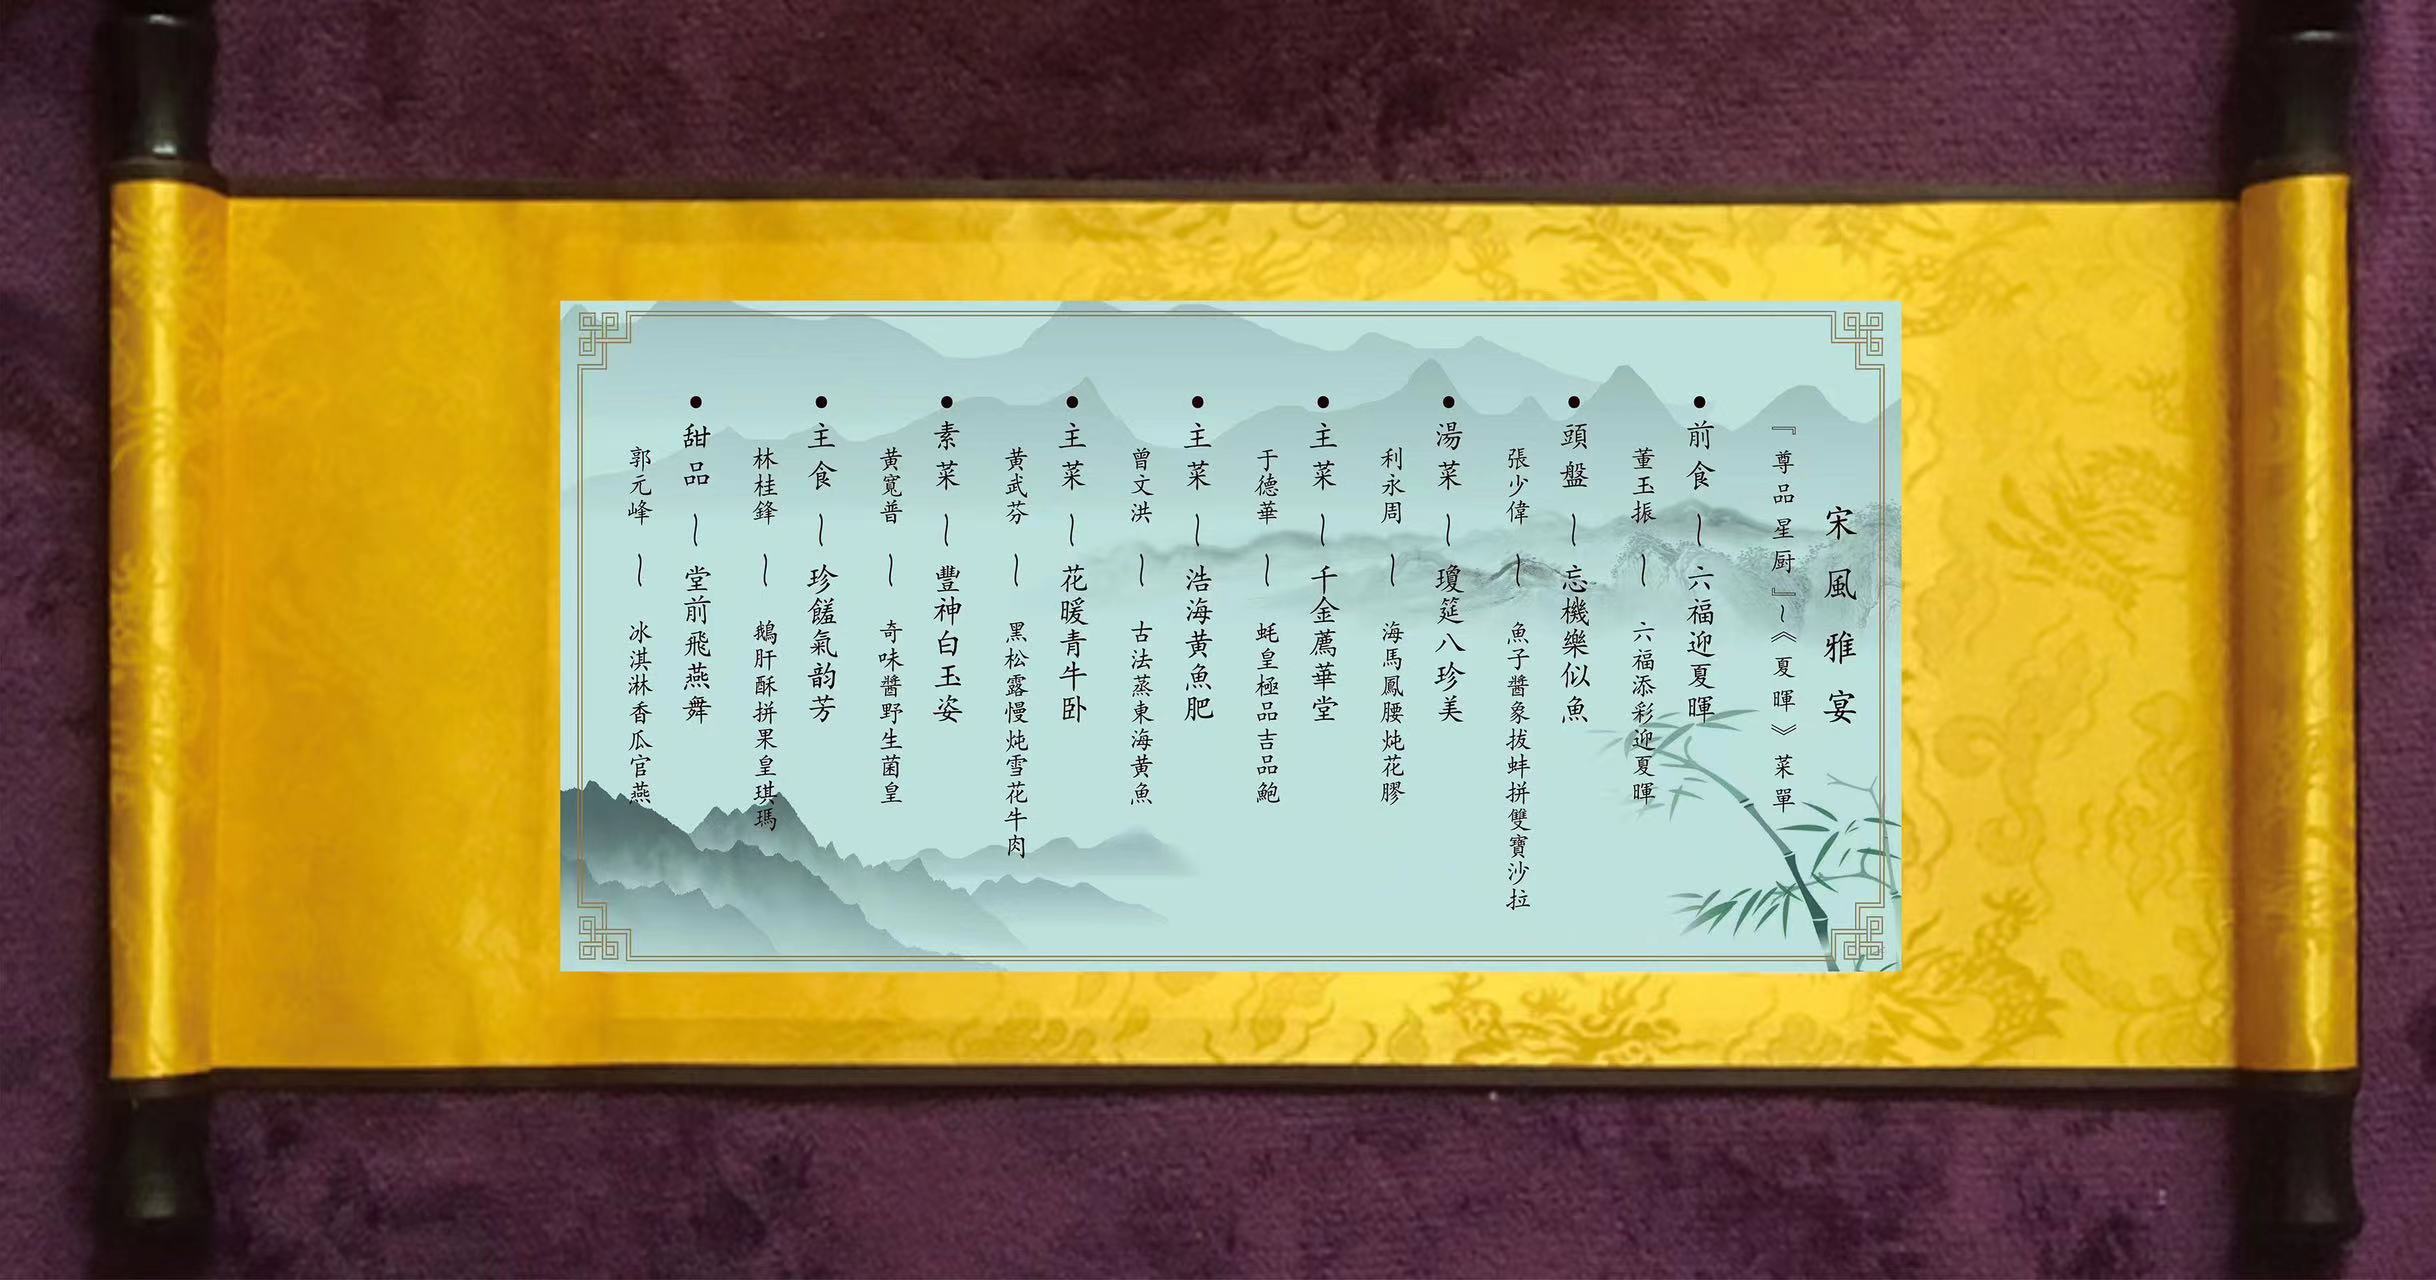 宋風雅宴
『尊品星厨』~《夏暉》菜單
●前食~六福迎夏暉
董玉振~六福添彩迎夏暉
●頭盤~忘機樂似魚
張少偉~魚子醬象拔蚌拼雙寶沙拉
●湯菜~瓊筵八珍美
利永周~海馬鳳腰炖花膠
●主菜~千金薦華堂
于德華~蚝皇極品吉品鮑
●主菜~浩海黄魚肥
曾文洪~古法蒸東海黄魚
●主菜~花暖青牛卧
黄武芬~黑松露慢炖雪花牛肉
●素菜~豐神白玉姿
黄寬普~奇味醬野生菌皇
●主食~珍饈氣韵芳
林桂鋒~鵝肝酥拼果皇琪瑪
●甜品~堂前飛燕舞
郭元峰~冰淇淋香瓜官燕